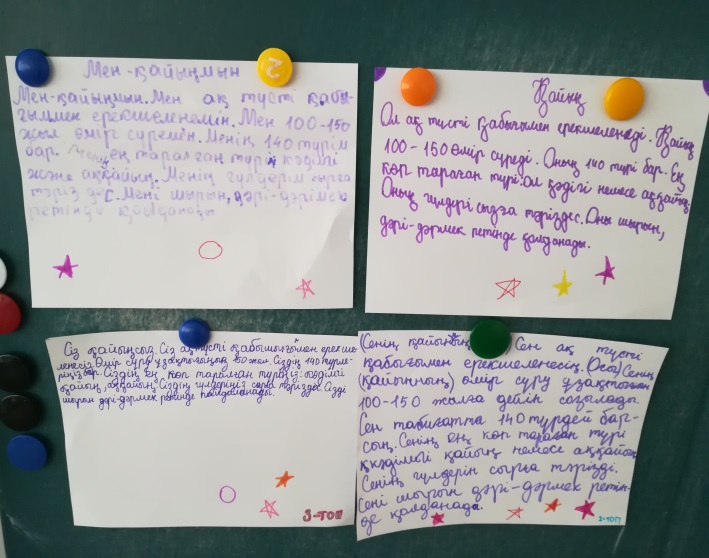 Мен-қайыңмын
Мен-қайыңмын. Мен ақ түсті қабы-
ғыммен ерекшеленемін. Мен 100-150
жыл өмір сүремін. Менің 140 түрім
бар. Менің ең таралған түрім кәдімгі
және аққайың. Менің гүлдерім сырға
тәріздес. Мені шырын, дәрі-дәрмек
ретінде қолданады
2
Қайың
Ол ақ түсті қабығымен ерекшеленеді. Қайың
100-150 өмір сүреді. Оның 140 түрі бар. Ең
көп тараған түрі: ол қәдігі немесе аққайың.
Оның гүлдері сызға тәріздес. Оны шырын,
дәрі-дәрмек ретінде қолданады.
Сіз қайыңсыз. Сіз ақ түсті қабышығымен ерекше
ленесіз. Өмір сүру ұзақтығыңыз жыл. Сіздің 140 түрлі-
ріңіз бар. Сіздің ең көп таралған түріңіз: кәдімгі
қайың, аққайың. Сіздің гүлдеріңіз сырға тәріздес. Сізді
шырын дәрі-дәрмек ретінде пайдаланады.
3-ТОП
(Сенің қайыңның) Сен ақ түсті
қабығымен ерекшеленесің. (Осы) Сенің
(қайыңның) өмір сүру ұзақтығың
100-150 жылға дейін созылады.
Сен табиғатта 140 түрдей бар-
сың. Сенің ең көп тараған түрі
кәдімгі қайың немесе аққайың
Сенің гүлдерің сырға тәрізді.
Сені шырын дәрі-дәрмек ретін-
де қолданада.
2-ТОП